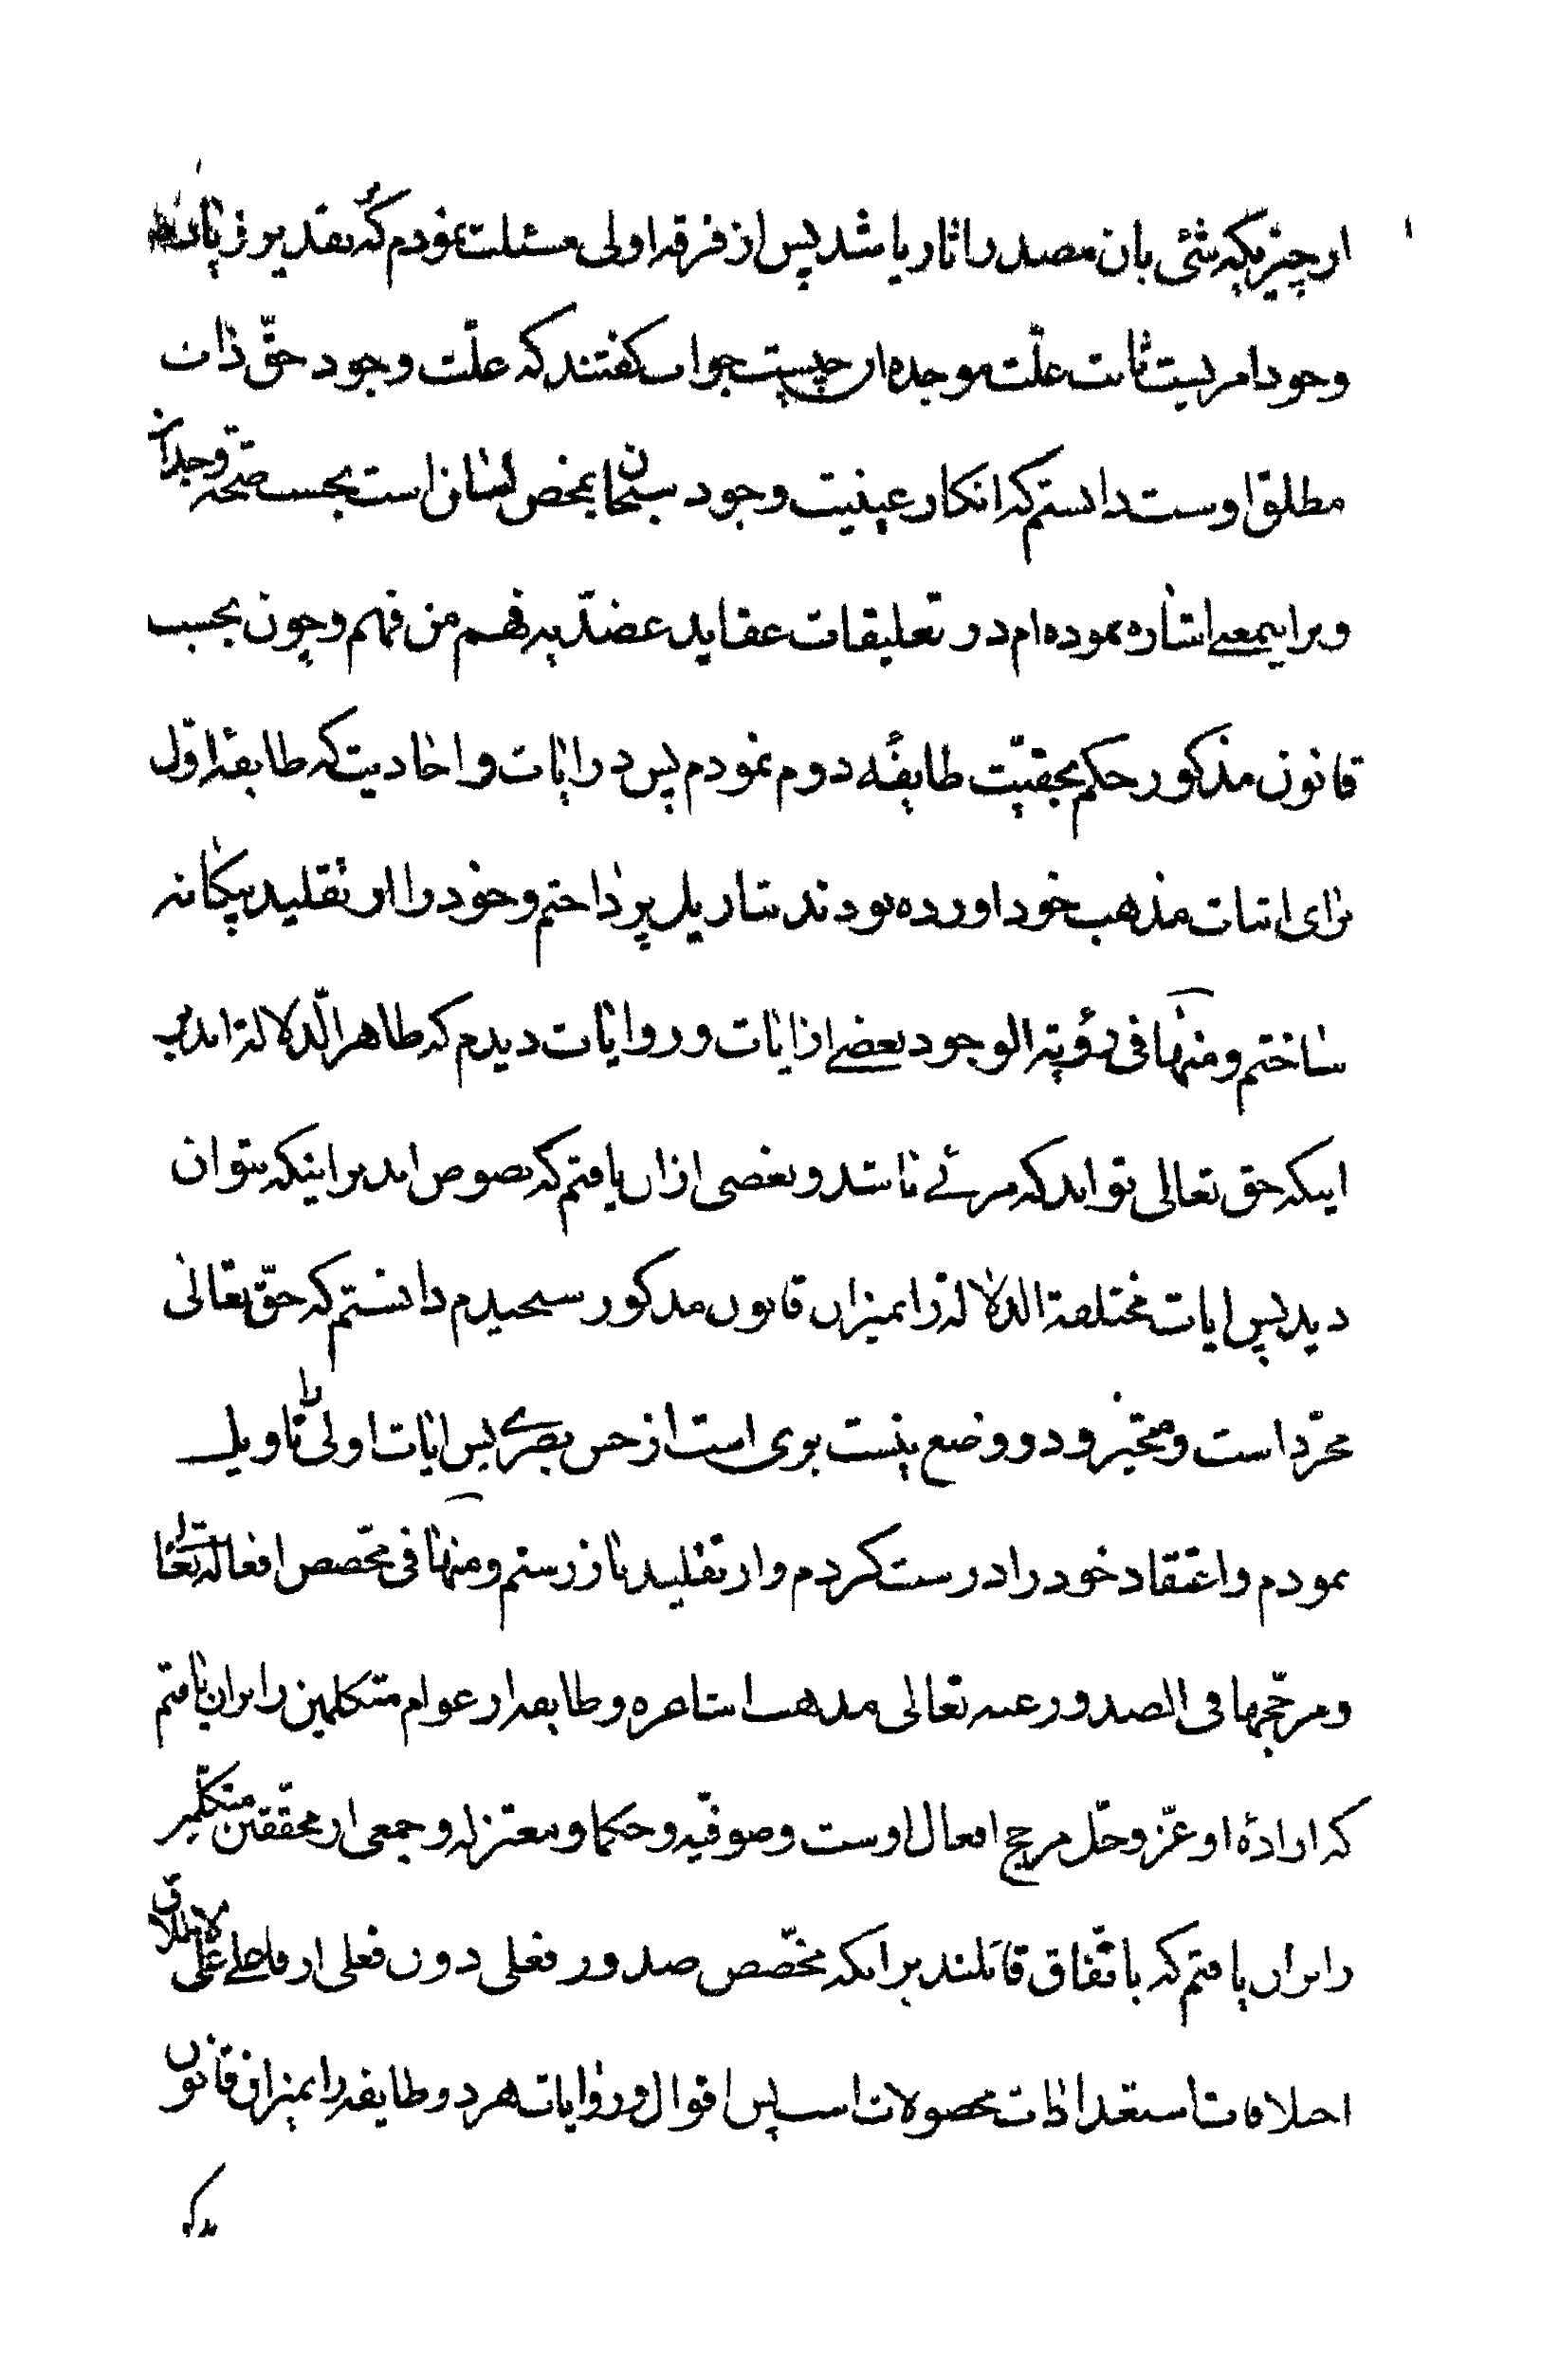 از چیزیکه شئی بان مصدر اثار باشد پس از فرقه اولی مسئلت نمودم که بتقدیر زیادت
وجود امریست ثابت علّت موجده ان چیست جواب کفتند که علّت وجود حقّ ذات
مطلق اوست دانستم که انکار عینیت وجود سبحان بمحض لسان است بحسب صحّت وجدان
و براینمعنی اشاره نموده ام در تعلیقات عقاید عضدّیه فهم من فهم و چون بحسب
قانون مذکور حکم بحقیّت طایفهٔ دوم نمودم پس در ایات و احادیث که طایفه اوّل
برای اثبات مذهب خود اورده بودند بتاویل پرداختم و خود را از تقلید بیکانه
ساختم و منها فی رؤیة الوجود بعضی از ایات و روایات دیدم که ظاهر الّدلالة اند بر
اینکه حق تعالی تواند که مرئی باشد و بعضی ازان یافتم که نصوص اند بر اینکه نتوان
دید پس ایات مختلفة الدلالة را بمیزان قانون مذکور سنجیدم دانستم که حقّ تعالی
مجرّد است و متحیّز و ذو وضع نیست بری است از حس بصری پس ایات اولی را تاویل
نمودم و اعتقاد خود را درست کردم و از تقلید باز رستم و منها فی مخصّص افعاله تعالی
و مرجّحها فی الصدور عنه تعالی مذهب اشاعره و طایفه از عوام متکلمین را بران یافتم
که ارادهٔ او عزّ و جلّ مرجح افعال اوست و صوفیّه و حکما و معتزله و جمعی از محققین متکلّمین
را بران یافتم که باتّفاق قائلند بر انکه مخصّص صدور فعلی دون فعلی از فاعلی علی الاطلاق
اختلافات استعدادات محصولات است پس اقوال و روایات هر دو طایفه را بمیزان قانون
مذکو